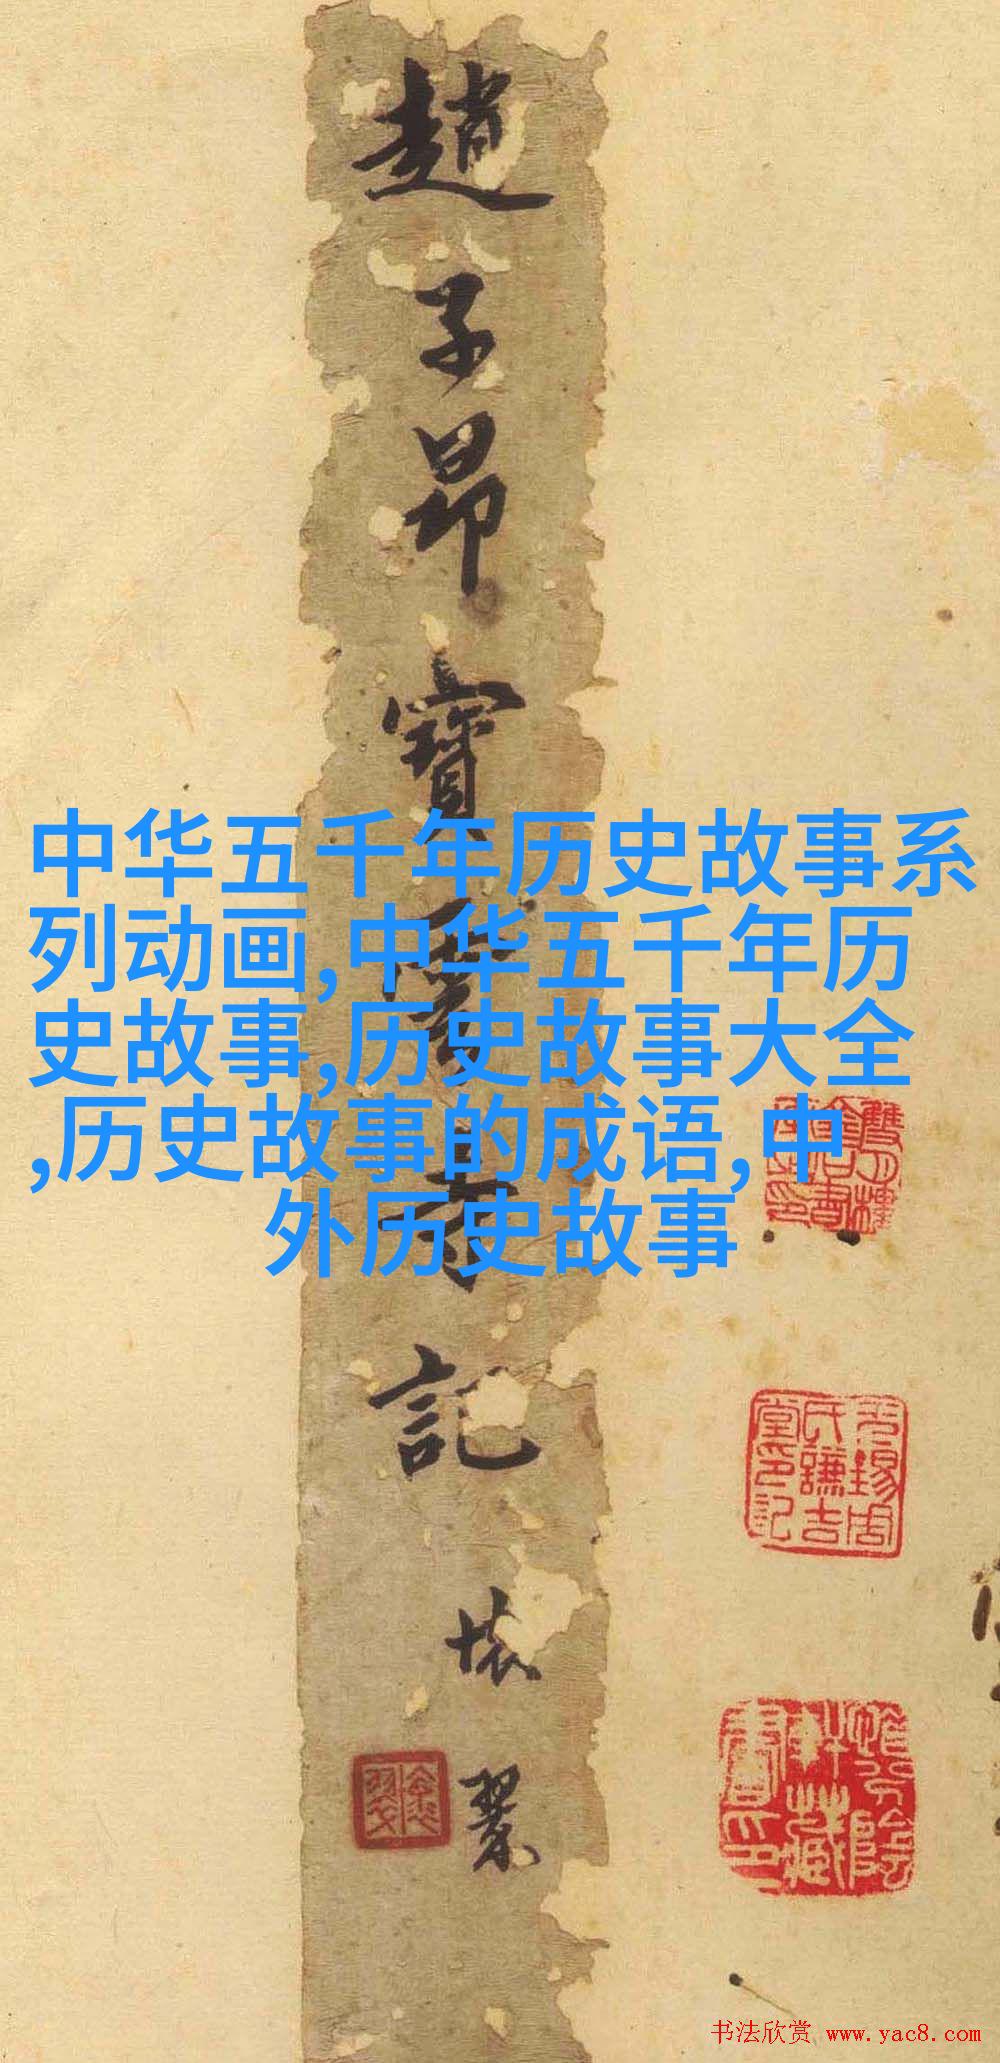 趙子昂寶雲寺記
中华五千年历史故事系
列动画,中华五千年历
史故事,历史故事大全
,历史故事的成语,中
外历史故事
氏謙吉
堂印記
書法欣赏 www.yac8.com